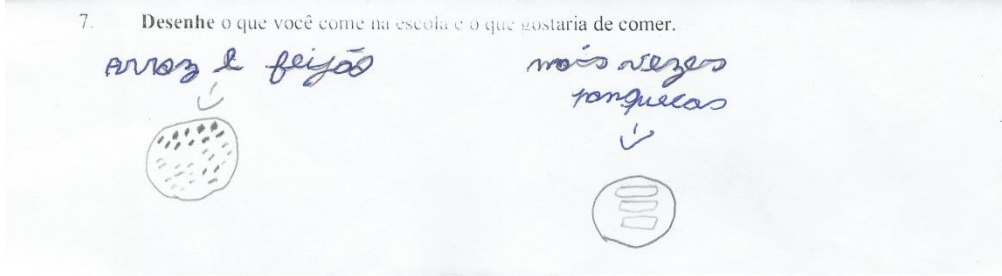 7. Desenhe o que você come na escola e o que gostaria de comer.
arroz e feijão
mais vezes
panquecas